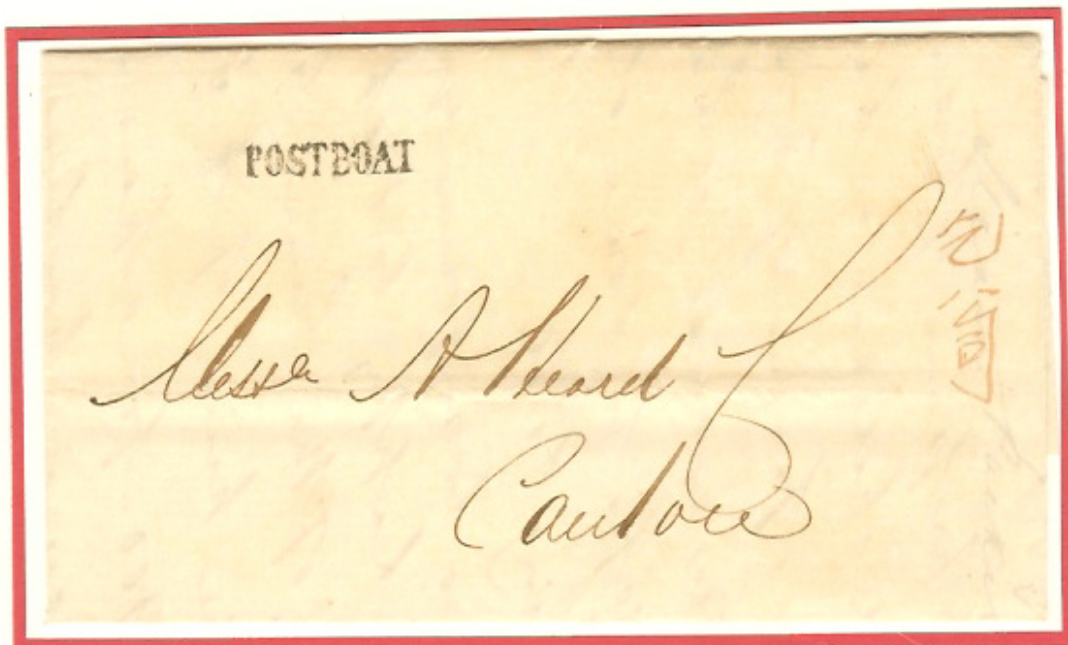 POSTBOAT
Messrs A Heard
Canton
公司